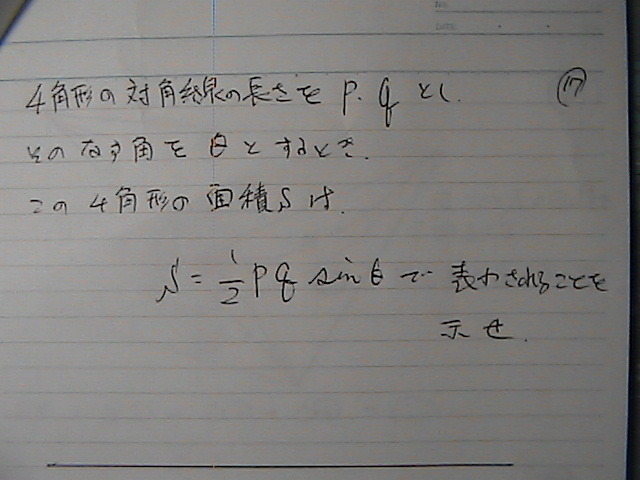 NO.
DATE
4角形の対角線の長さを p. q とし. ⑰
そのなす角を θ とするとき.
この4角形の面積 S は.
S = 1/2 p q sin θ で 表わされることを
示せ.